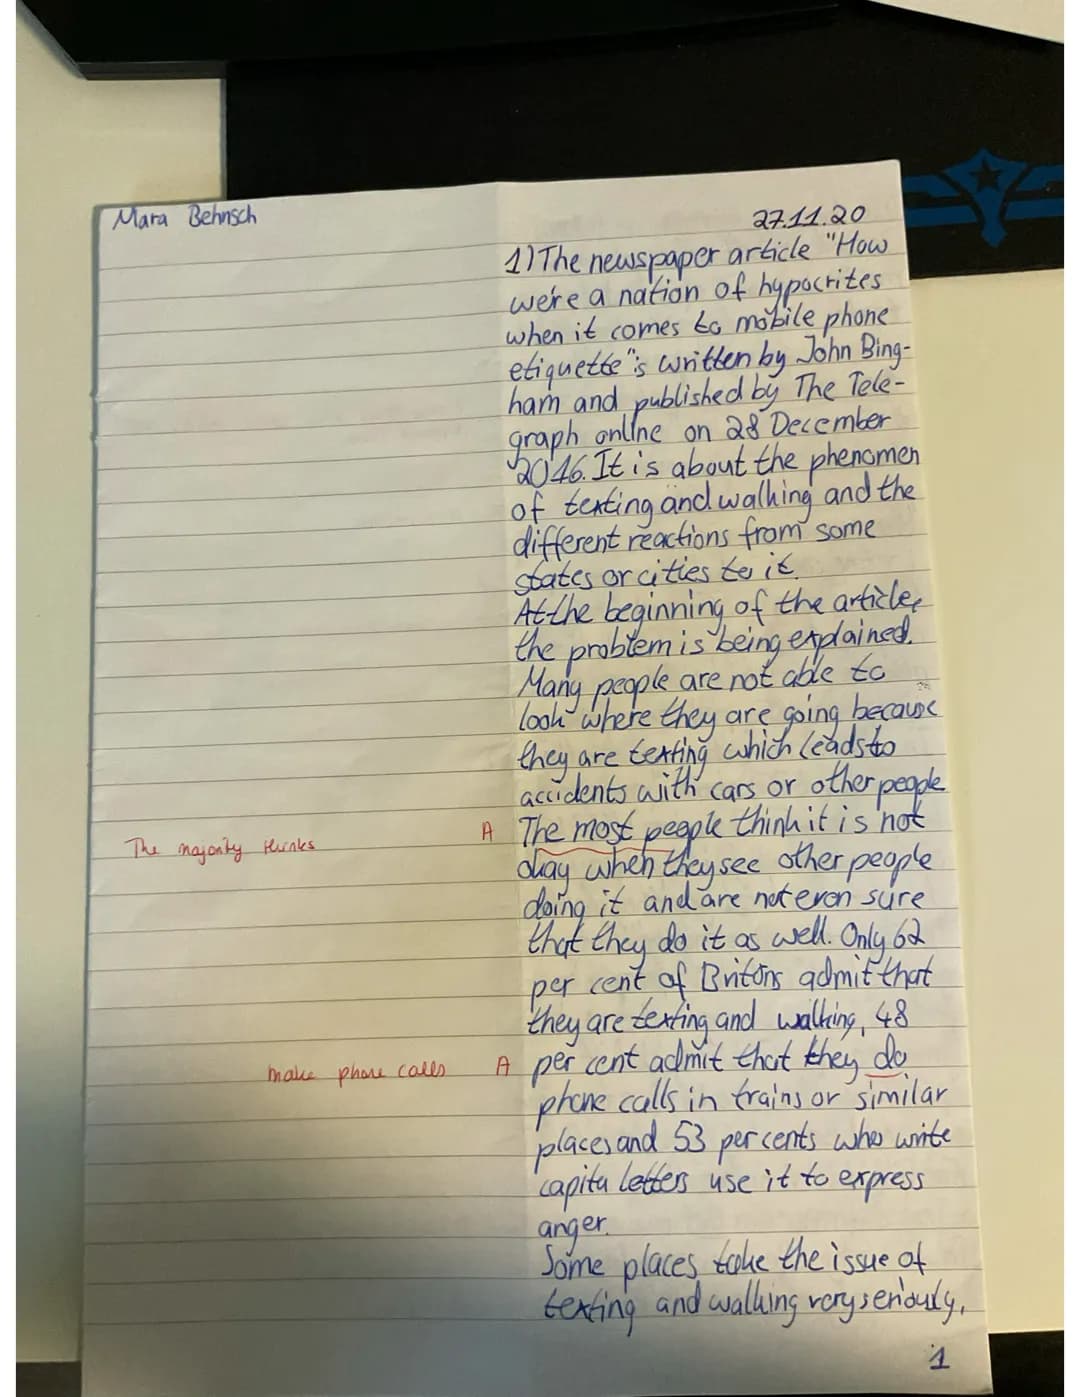 Mara Behnsch
27.11.20
1) The newspaper article "How
we're a nation of hypocrites
when it comes to mobile phone
etiquette" is written by John Bing-
ham and published by The Tele-
graph online on 28 December
2016. It is about the phenomen
of texting and walking and the
different reactions from some
states or cities to it.
At the beginning of the article,
the problem is being explained.
Many people are not able to
look where they are going because
they are texting which leads to
accidents with cars or other people
The majority thinks A The most people think it is not
okay when they see other people
doing it and are not even sure
that they do it as well. Only 62
per cent of Britons admit that
they are texting and walking, 48
make phone calls A per cent admit that they do
phone calls in trains or similar
places and 53 per cents who write
capita letters use it to express
anger.
Some places take the issue of
texting and walking very seriouly,
1